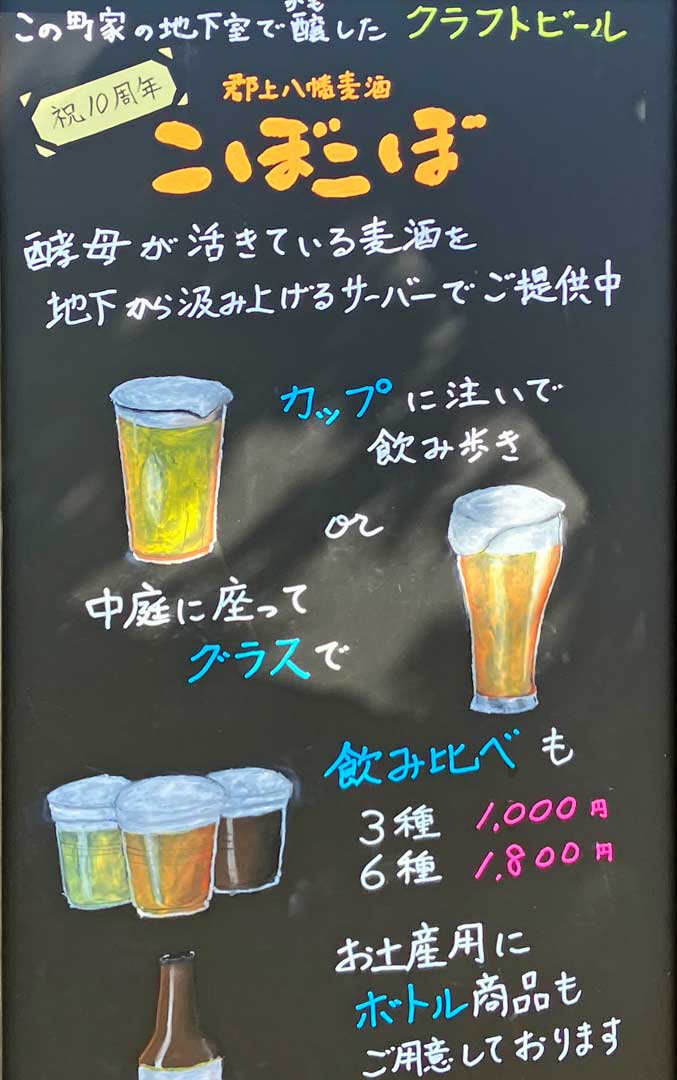 この町家の地下室で醸した クラフトビール
かも
祝10周年
郡上八幡麦酒
こぼこぼ
酵母が活きている麦酒を
地下から汲み上げるサーバーでご提供中
カップに注いで
飲み歩き
or
中庭に座って
グラスで
飲み比べも
3種 1,000円
6種 1,800円
お土産用に
ボトル商品も
ご用意しております